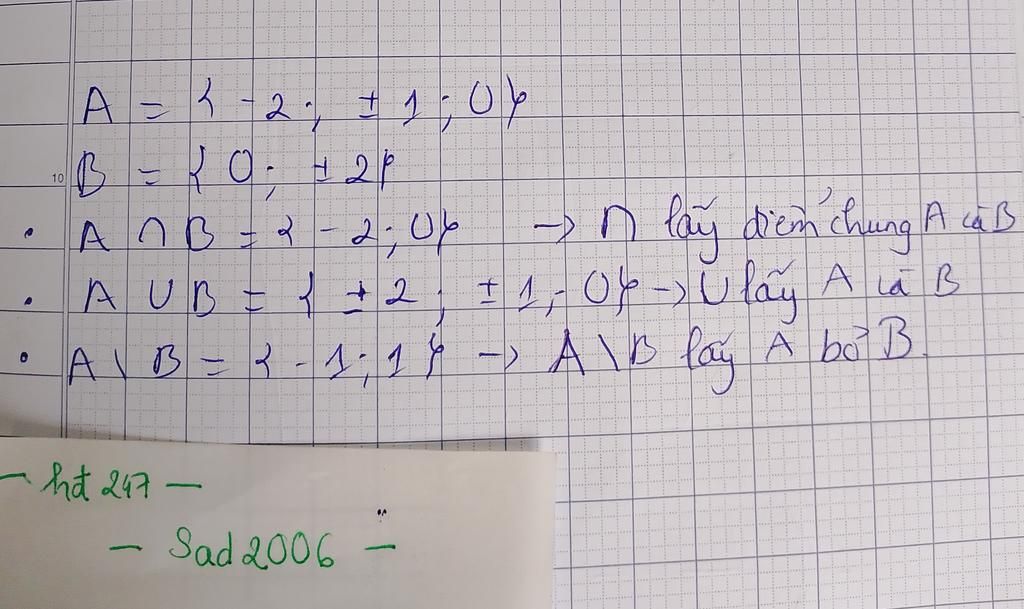 A = { -2 ; ± 1 ; 0 }
10 B = { 0 ; ± 2 }
• A ∩ B = { -2 ; 0 } → ∩ lấy điểm chung A và B
• A ∪ B = { ± 2 ; ± 1 ; 0 } → ∪ lấy A và B
• A \ B = { -1 ; 1 } → A \ B lấy A bở B.
- hđ 247 -
- Sad2006 -